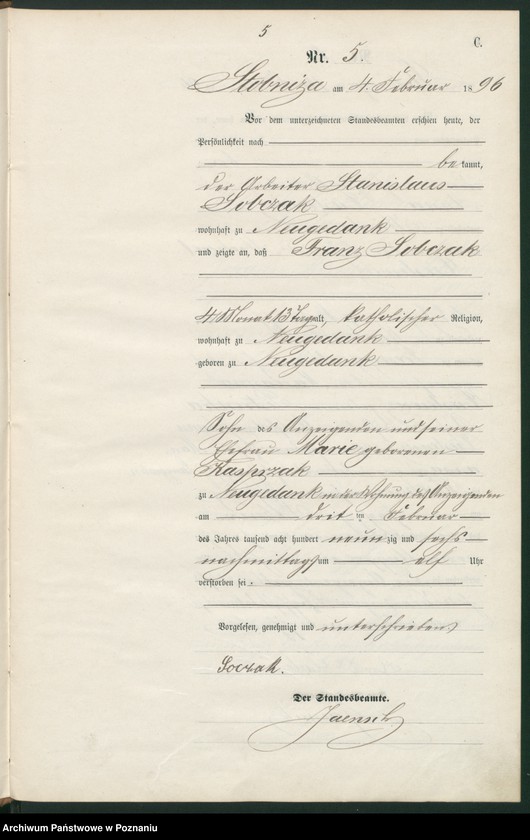 5
C.
Nr. 5.
Stobniza am 4. Februar 1896
Vor dem unterzeichneten Standesbeamten erschien heute, der
Persönlichkeit nach
bekannt,
der Arbeiter Stanislaus
Sobczak
wohnhaft zu Neugedank
und zeigte an, daß Franz Sobczak
4 Monat 13 Tage alt, katholischer Religion,
wohnhaft zu Neugedank
geboren zu Neugedank
Sohn des Anzeigenden und seiner
Ehefrau Marie geborenen
Kasprzak
zu Neugedank in der Wohnung des Anzeigenden
am drit im Februar
des Jahres tausend acht hundert neunzig und sechs
nachmittags um elf Uhr
verstorben sei.
Vorgelesen, genehmigt und unterschrieben
Soczak.
Der Standesbeamte.
Jaensch
Archiwum Państwowe w Poznaniu